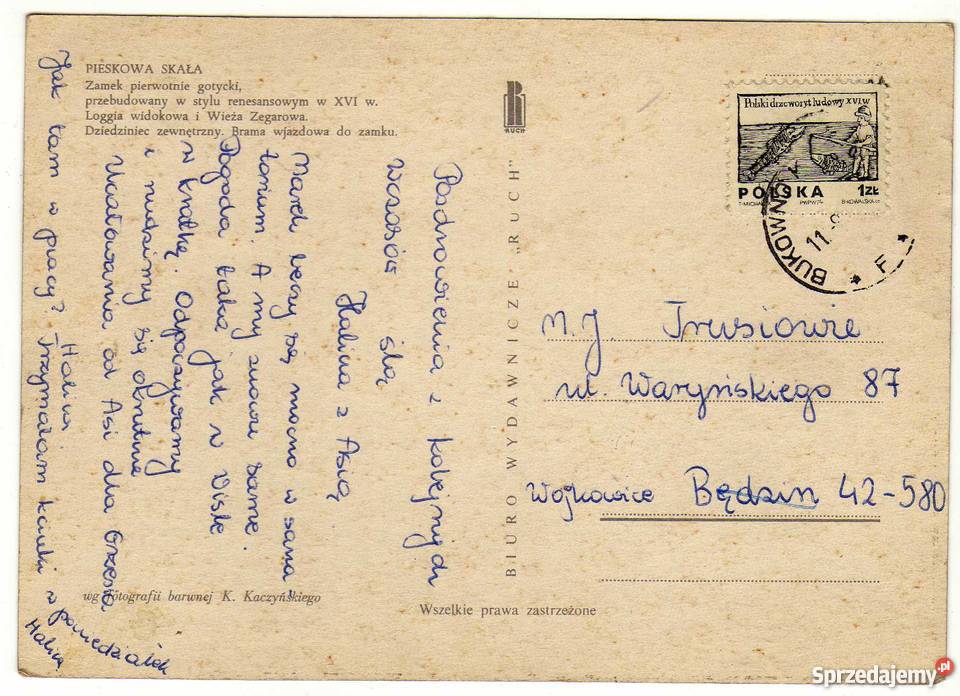 PIESKOWA SKAŁA
Zamek pierwotnie gotycki,
przebudowany w stylu renesansowym w XVI w.
Loggia widokowa i Wieża Zegarowa.
Dziedziniec zewnętrzny. Brama wjazdowa do zamku.
RUCH
Polski drzeworyt ludowy XVI w
POLSKA 1ZŁ
PWPW
BUKOWN
11.
F
Pozdrowienia z kolejnych
wczasów
ślą
Halina z Asią
Marek leczy się mocno w sana-
torium. A my znowu same.
Pogoda taka jak w Wiśle
w kratkę. Odpoczywamy
i nudzimy się okrutnie
Ucałowania od Asi dla Grzesia
Halina.
Jak tam w pracy? Trzymałam kciuki w poniedziałek
Halina.
BIURO WYDAWNICZE „RUCH"
M. J. Trusiowie
ul. Waryńskiego 87
Wojkowice Będzin 42-580
wg fotografii barwnej K. Kaczyńskiego
Wszelkie prawa zastrzeżone
Sprzedajemy.pl